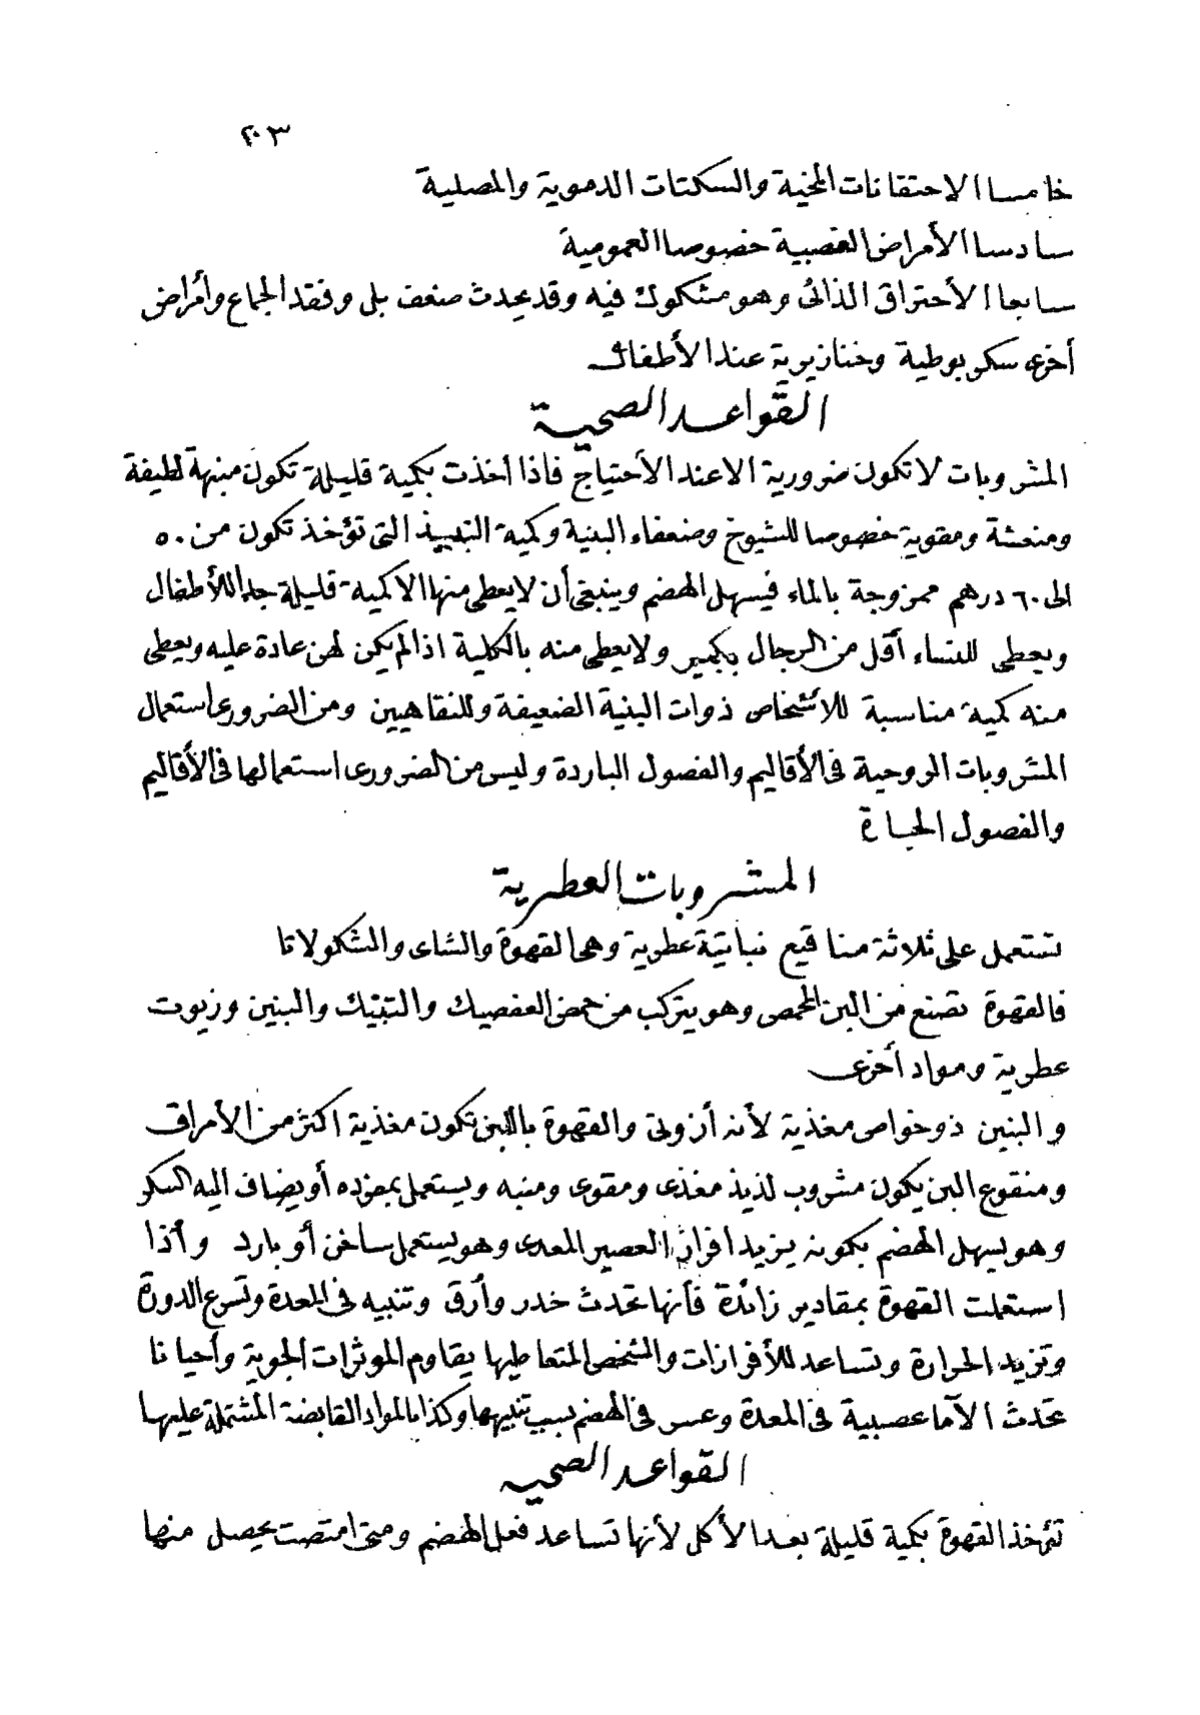 ٢٠٣
خامسا الاحتقانات المخية والسكتات الدموية والمصلية
سادسا الأمراض العصبية خصوصا العمومية
سابعا الأحتراق الذاتى وهو مشكوك فيه وقد يحدث ضعف بلى وفقد الجماع وأمراض
أخرى سكربوطية وخنازيرية عند الأطفال
القواعد الصحية
المشروبات لا تكون ضرورية الا عند الأحتياج فاذا أخذت بكمية قليلة تكون منبهة لطيفة
ومنعشة ومقوية خصوصا للشيوخ وضعفاء البنية وكمية النبيذ التى تؤخذ تكون من ٥٠
الى ٦٠ درهم ممزوجة بالماء فيسهل الهضم وينبغى أن لا يعطى منها الا كمية قليلة جدا للأطفال
ويعطى للنساء أقل من الرجال بكثير ولا يعطى منه بالكلية اذا لم يكن لهن عادة عليه ويعطى
منه كمية مناسبة للاشخاص ذوات البنية الضعيفة وللنقاهيين ومن الضرورى استعمال
المشروبات الروحية فى الأقاليم والفصول الباردة وليس من الضرورى استعمالها فى الأقاليم
والفصول الحارة
المشروبات العطرية
تستعمل على ثلاثة مناقيع نباتية عطرية وهى القهوة والشاى والشكولاتا
فالقهوة تصنع من البن المحمص وهو يتركب من حمض العفصيك والتنيك والبنين وزيوت
عطرية ومواد أخرى
والبنين ذو خواص مغذية لأنه أزوتى والقهوة باللبن تكون مغذية اكثر من الأمراق
ومنقوع البن يكون مشروب لذيذ مغذى ومقوى ومنبه ويستعمل بمفرده أو يضاف اليه السكر
وهو يسهل الهضم بكونه يزيد افراز العصير المعدى وهو يستعمل ساخن أو بارد وأذا
استعملت القهوة بمقادير زائدة فأنها تحدث خدر وأرق وتنبيه فى المعدة وتسرع الدورة
وتزيد الحرارة وتساعد للأفرازات والشخص المتعاطيها يقاوم الموثرات الجوية وأحيانا
تحدث الآما عصبية فى المعدة وعسر فى الهضم بسبب تنبيهها وكذا المواد القابضة المشتملة عليها
القواعد الصحيه
تؤخذ القهوة بكمية قليلة بعد الأكل لأنها تساعد فعل الهضم ومتى امتصت يحصل منها